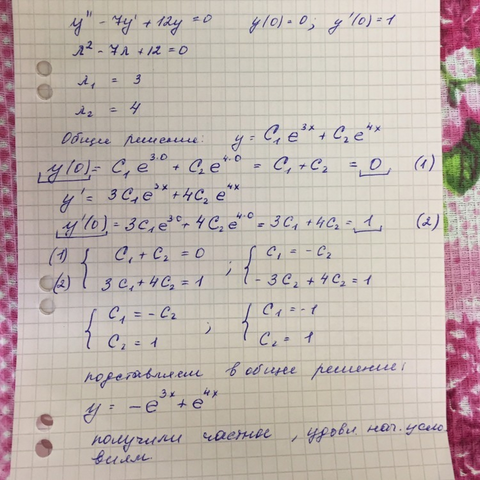 y'' - 7y' + 12y = 0 y(0) = 0; y'(0) = 1
λ² - 7λ + 12 = 0
λ₁ = 3
λ₂ = 4
Общие решение: y = C₁e^{3x} + C₂e^{4x}
y(0) = C₁e^{3·0} + C₂e^{4·0} = C₁ + C₂ = 0 (1)
y' = 3C₁e^{3x} + 4C₂e^{4x}
y'(0) = 3C₁e^{3·0} + 4C₂e^{4·0} = 3C₁ + 4C₂ = 1 (2)
(1) { C₁ + C₂ = 0 ; { C₁ = -C₂
(2) 3C₁ + 4C₂ = 1 - 3C₂ + 4C₂ = 1
{ C₁ = -C₂ ; { C₁ = -1
C₂ = 1 C₂ = 1
подставляем в общее решение:
y = -e^{3x} + e^{4x}
получили частное, удовл нач. усло
виям